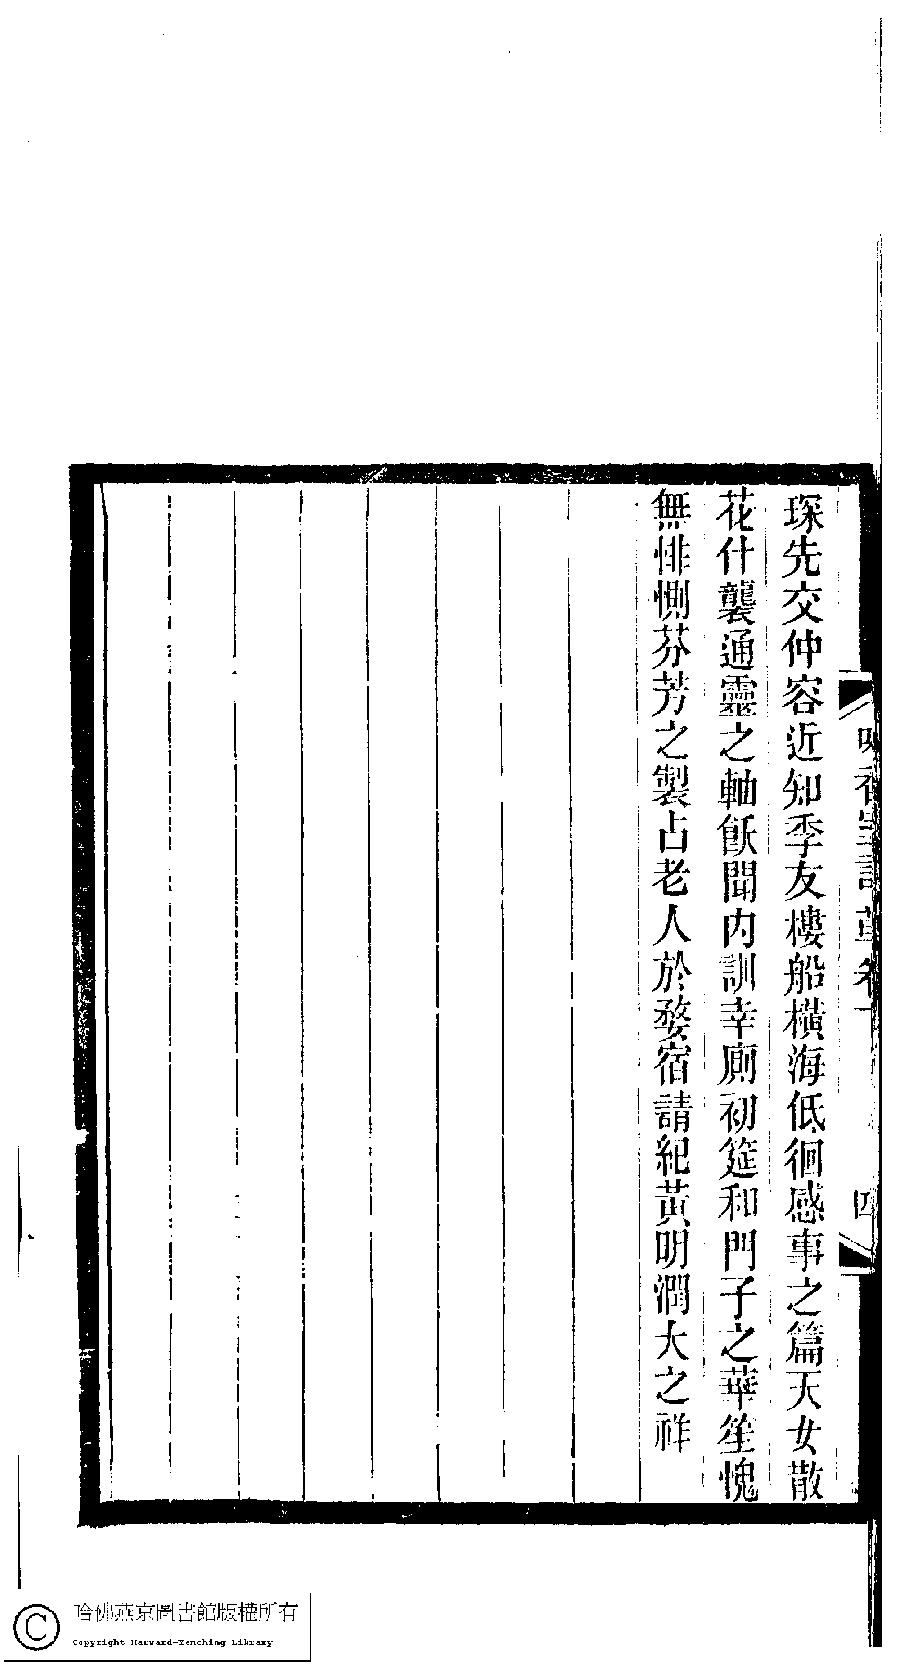 琛先交仲容近知季友樓船橫海低徊感事之篇天女散
花什襲通靈之軸飫聞內訓幸廁初筵和門子之華笙愧
無悱惻芬芳之製占老人於婺宿請紀黃明潤大之祥
四
哈佛燕京圖書館版權所有
Copyright Harvard-Yenching Library